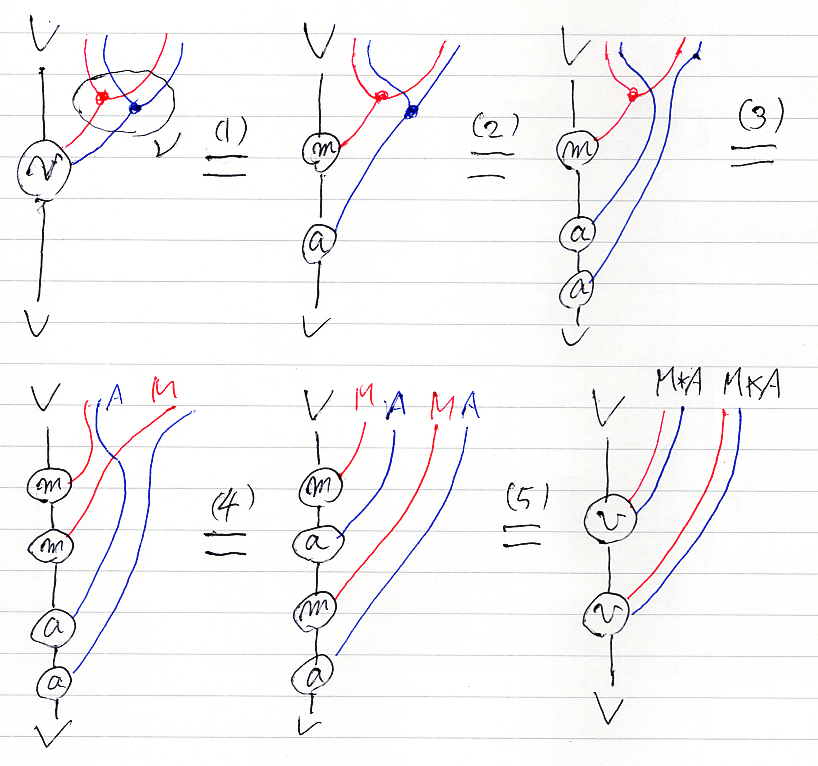 V V V
(1) (2) (3)
=
=
=
ν
v m m
a a
a
V V V
V A M V M A M A V M*A M*A
m m (4) (5) v
= =
m a
a m v
a a
V V V